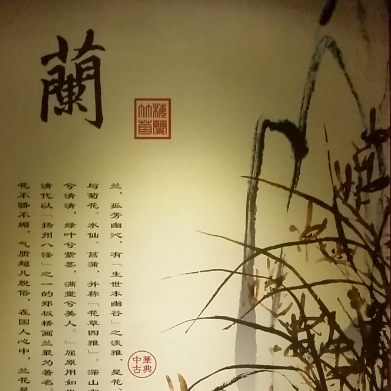 蘭
梅蘭竹菊
兰，孤芳幽沁，有「生世本幽谷」之淡雅，是花
与菊花、水仙、菖蒲，并称「花草四雅」。深山
兮清清，绿叶兮紫茎，满堂兮美人。」屈原用如
清代以「扬州八怪」之一的郑板桥画兰最为著名
花不骄不媚，气质超凡脱俗，在国人心中，兰花是
中華古典